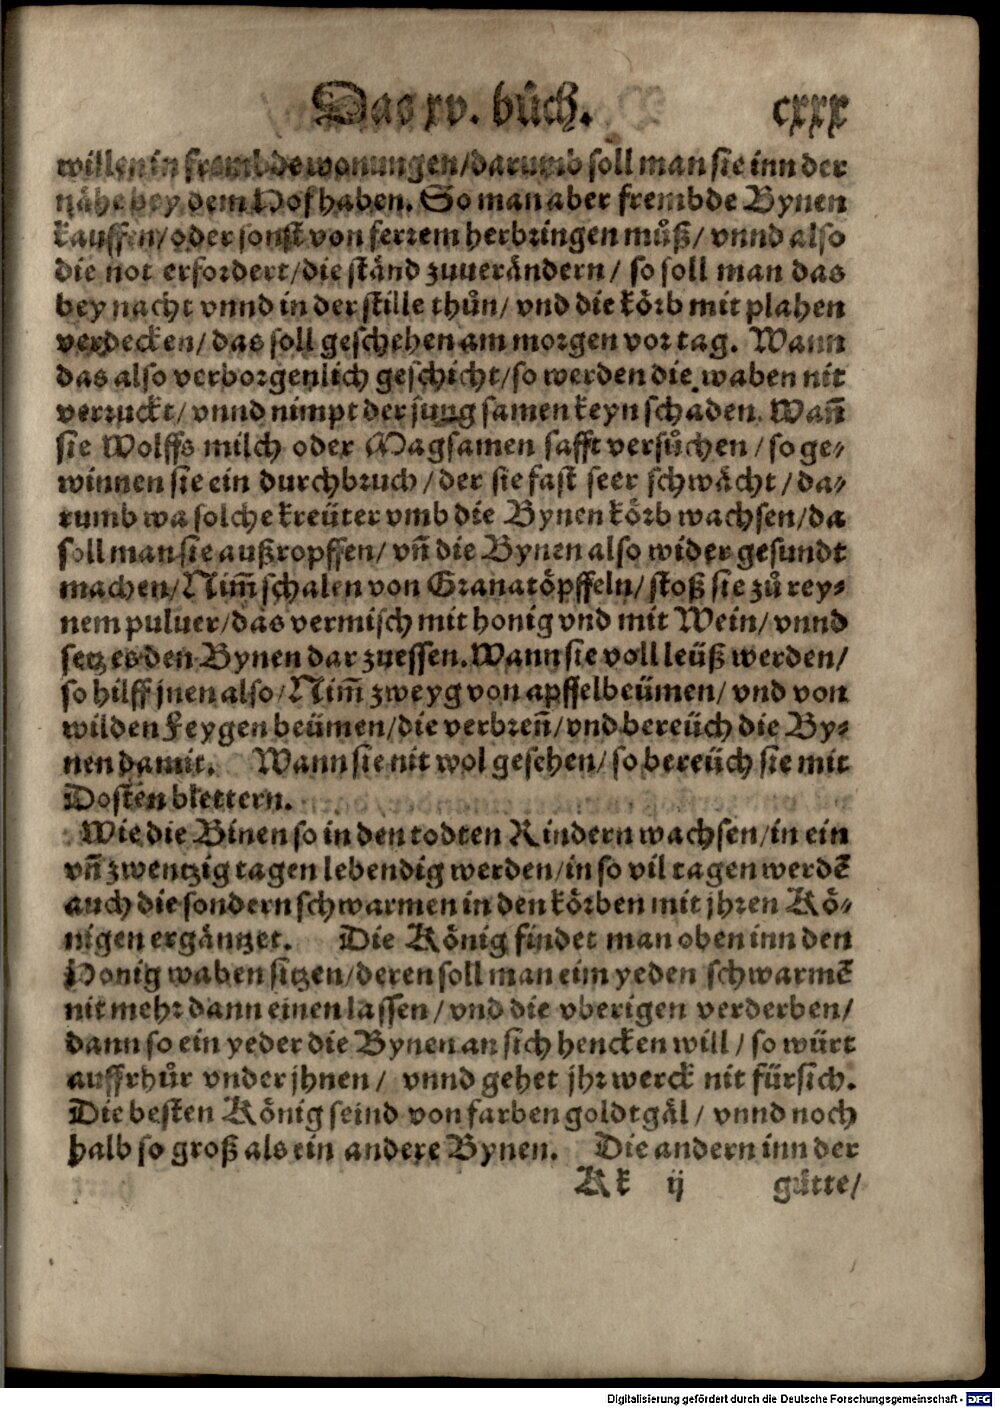 Das xv. bůch. cxxx
willen in frembde wonungen/darumb soll man sie inn der
nähe bey dem Hof haben. So man aber frembde Bynen
kauffen/oder sonst von ferrem herbringen můß/ vnnd also
die not erfordert/die ständ zuuerändern/ so soll man das
bey nacht vnnd in der stille thůn/ vnd die körb mit plahen
verdecken/das soll geschehen am morgen vor tag. Wann
das also verborgenlich geschicht/so werden die waben nit
verruckt/ vnnd nimpt der jung samen keyn schaden. Wañ
sie Wolffs milch oder Magsamen safft versůchen/so ge⸗
winnen sie ein durchbruch/der sie fast seer schwächt/da⸗
rumb wa solche kreüter vmb die Bynen körb wachsen/da
soll man sie außropffen/ vñ die Bynen also wider gesundt
machen/Nim̃ schalen von Granatöpffeln/stoß sie zů rey⸗
nem puluer/das vermisch mit honig vnd mit Wein/ vnnd
setz es den Bynen dar zuessen. Wann sie voll leüß werden/
so hilff jnen also/Nim̃ zweyg von apffelbeümen/ vnd von
wilden Feygen beümen/die verbreñ/vnd bereüch die By⸗
nen damit. Wann sie nit wol gesehen/so bereüch sie mit
Dosten blettern.
Wie die Binen so in den todten Rindern wachsen/in ein
vñ zwentzig tagen lebendig werden/in so vil tagen werdẽ
auch die sondern schwarmen in den körben mit jhren Kö⸗
nigen ergäntzet. Die König findet man oben inn den
Honig waben sitzen/deren soll man eim yeden schwarmẽ
nit mehr dann einen lassen/vnd die vberigen verderben/
dann so ein yeder die Bynen an sich hencken will/ so würt
auffrhůr vnder jhnen/ vnnd gehet jhr werck nit fürsich.
Die besten König seind von farben goldtgäl/ vnnd noch
halb so groß als ein andere Bynen. Die andern inn der
Kk ij gütte/
Digitalisierung gefördert durch die Deutsche Forschungsgemeinschaft - DFG